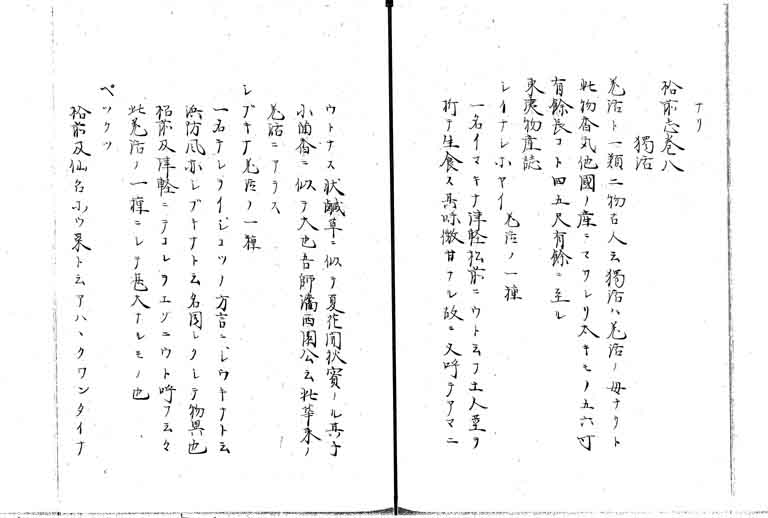 ナリ
松前志巻八
獨活
羌活ト一類二物古人云獨活ハ羌活ノ母ナリト
此物香気他國ノ産ニマサレリ太キモノ五六寸
有餘長コト四五尺有餘ニ至ル
東夷物産誌
シイナレホヤイ 羌活ノ一種
一名イマキナ津軽松前ニウトト云フ土人莖ヲ
折テ生食ス其味微甘ナル故ニ又呼テアマニ
ウトナス状鹹草ニ似テ夏花開秋實ノル其子
小茴香ニ似テ大也吾師藩西園公云此華来ノ
羌活ニアラス
シブキナ 羌活ノ一種
一名テレケイシコツノ方言ニシウキナト云
浜防風亦シブキナト云名同シクシテ物異也
松前及津軽ニテコレヲエゾニウト呼フ云々
此羌活ノ一種ニシテ甚大ナルモノ也
ペツクツ
松前及仙台小ウ菜ト云アハヽクワンタイナ